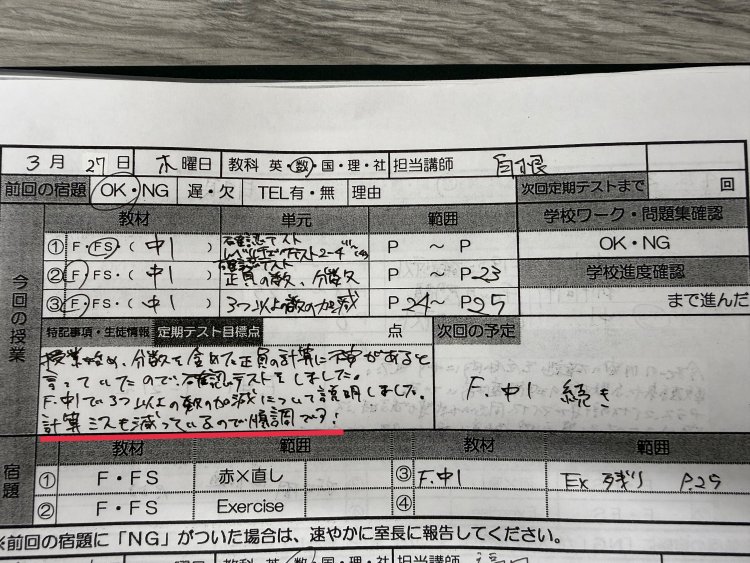 3月 27日 木曜日 教科 英・数・国・理・社 担当講師
前回の宿題 OK・NG 遅・欠 TEL有・無 理由 次回定期テストまで 回
今回の授業 教材 単元 範囲 学校ワーク・問題集確認
① F・FS・( 中1 ) 確認テスト P ～ P OK・NG
② F・FS・( 中1 ) 確認テスト 正負の数、分数 P ～ P23 学校進度確認
③ F・FS・( 中1 ) 3つ以上の数の加減 P24～P25 まで進んだ
特記事項・生徒情報 定期テスト目標点 点 次回の予定
授業始め、分数を含めた正負の計算に不安があると
言っていたので、確認テストをしました。
F.中1で3つ以上の数の加減について説明しました。
計算ミスも減っているので順調です!
F.中1 続き
宿題 教材 範囲 教材 範囲
① F・FS 赤×直し ③ F.中1 Ex 残り P.25
② F・FS Exercise ④
※前回の宿題に「NG」がついた場合は、速やかに室長に報告してください。
曜日 教科 英・数・国・理・社 担当講師